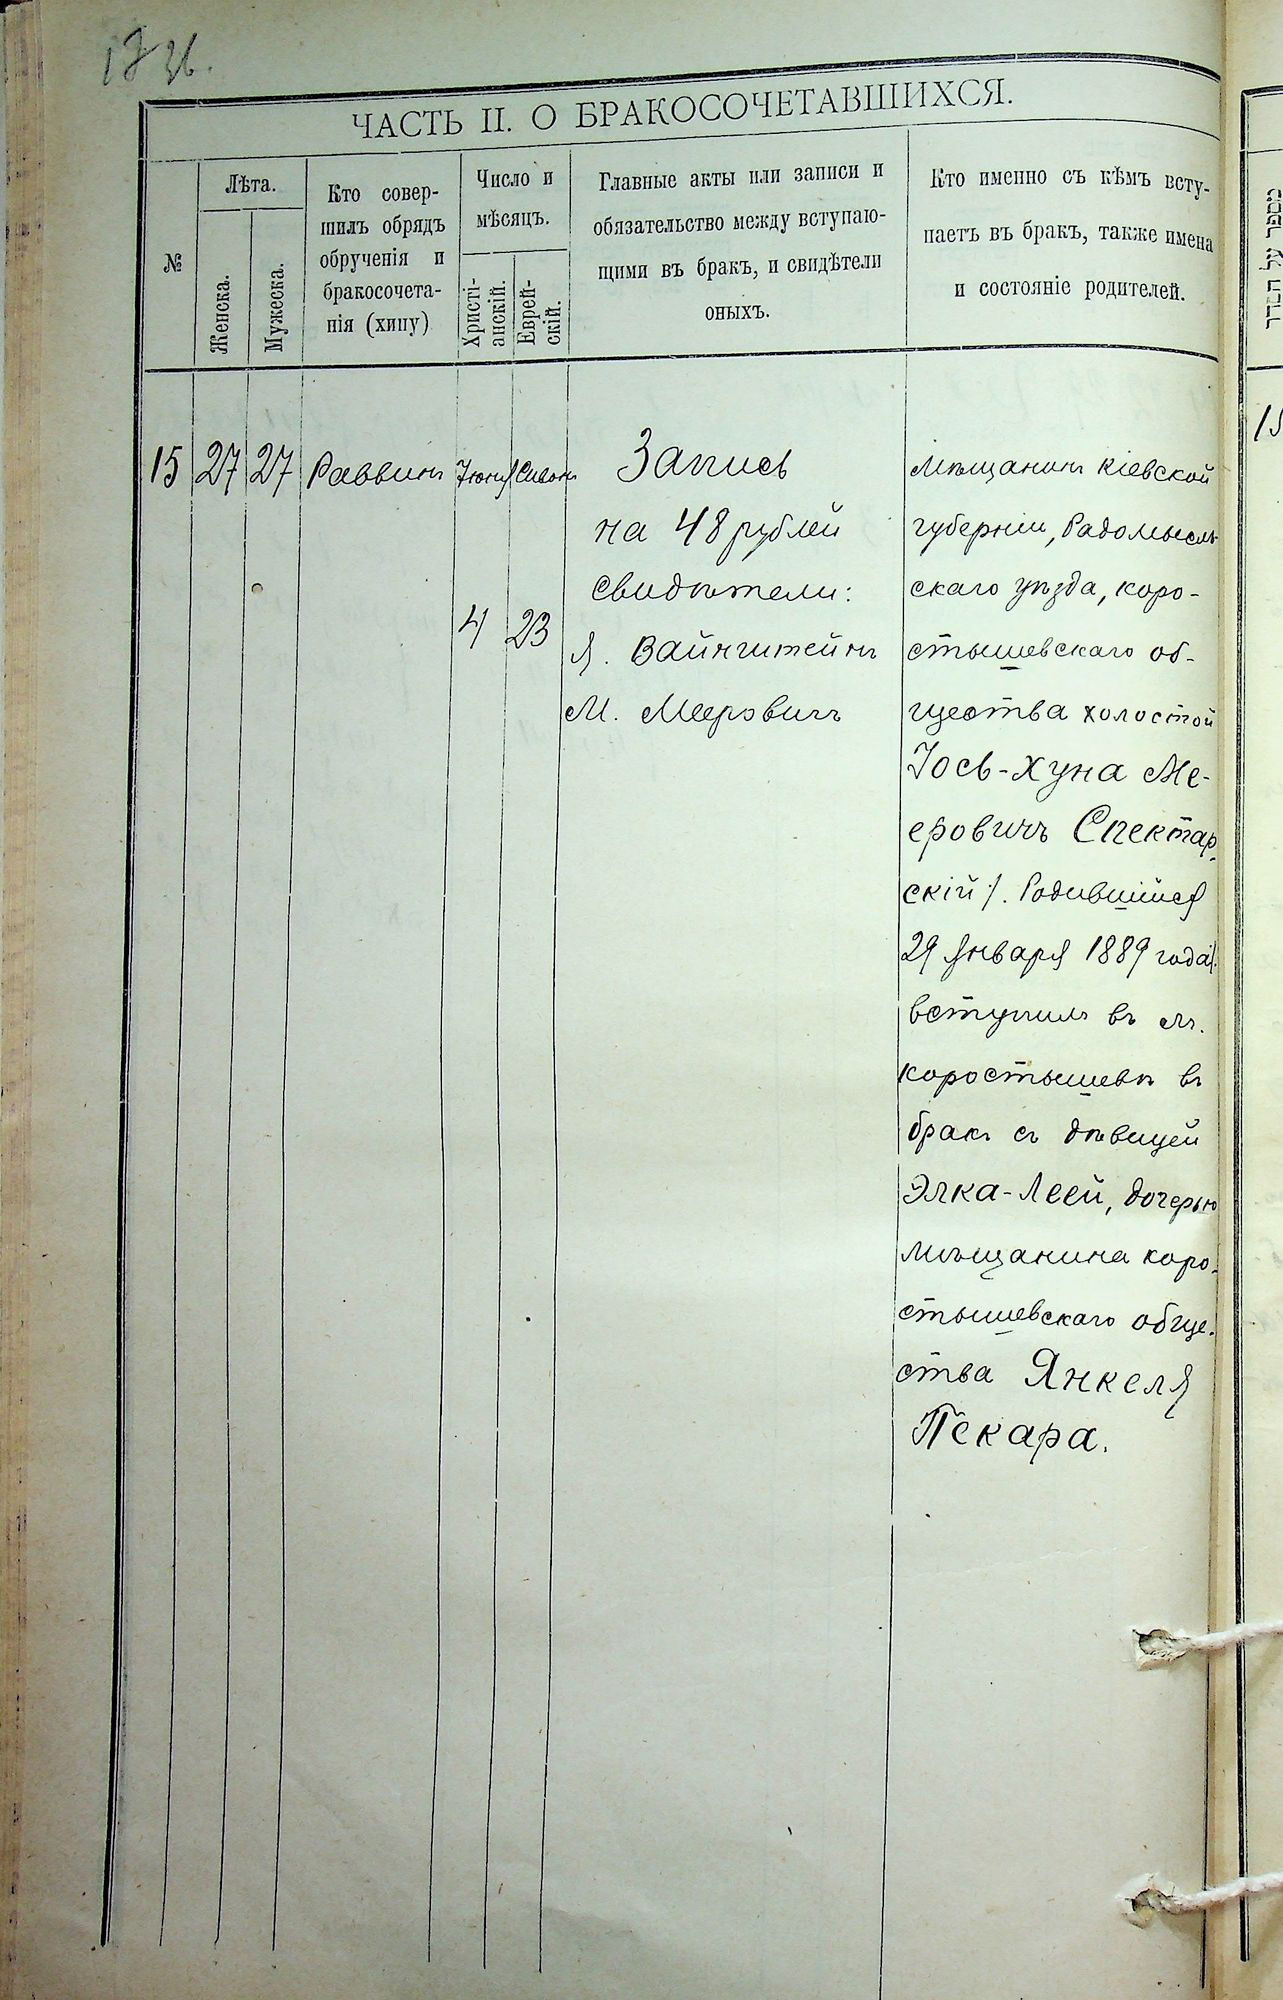 ЧАСТЬ II. О БРАКОСОЧЕТАВШИХСЯ.
№
Лѣта.
Женска.
Мужеска.
Кто совер-
шилъ обрядъ
обрученія и
бракосочета-
нія (хипу)
Число и
мѣсяцъ.
Христі-
анскій.
Еврей-
скій.
Главные акты или записи и
обязательство между вступаю-
щими въ бракъ, и свидѣтели
оныхъ.
Кто именно съ кѣмъ всту-
паетъ въ бракъ, также имена
и состояніе родителей.
15 27 27 Раввинъ Іюня Сивонъ
4 23
Запись
на 48 рублей
свидѣтели:
Я. Вайнштейнъ
М. Мееровичъ
Мѣщанинъ кіевской
губерніи, Радомысль-
скаго уѣзда, коро-
стышевскаго об-
щества холостой
Іось-Хуна Ме-
еровичъ Спектар-
скій /. Родившійся
29 Января 1889 года /.
вступилъ въ м.
коростышевѣ въ
бракъ съ дѣвицей
Элка-Леей, дочерью
мѣщанина коро-
стышевскаго обще-
ства Янкеля
Пекара.
מספר של הסדר
15